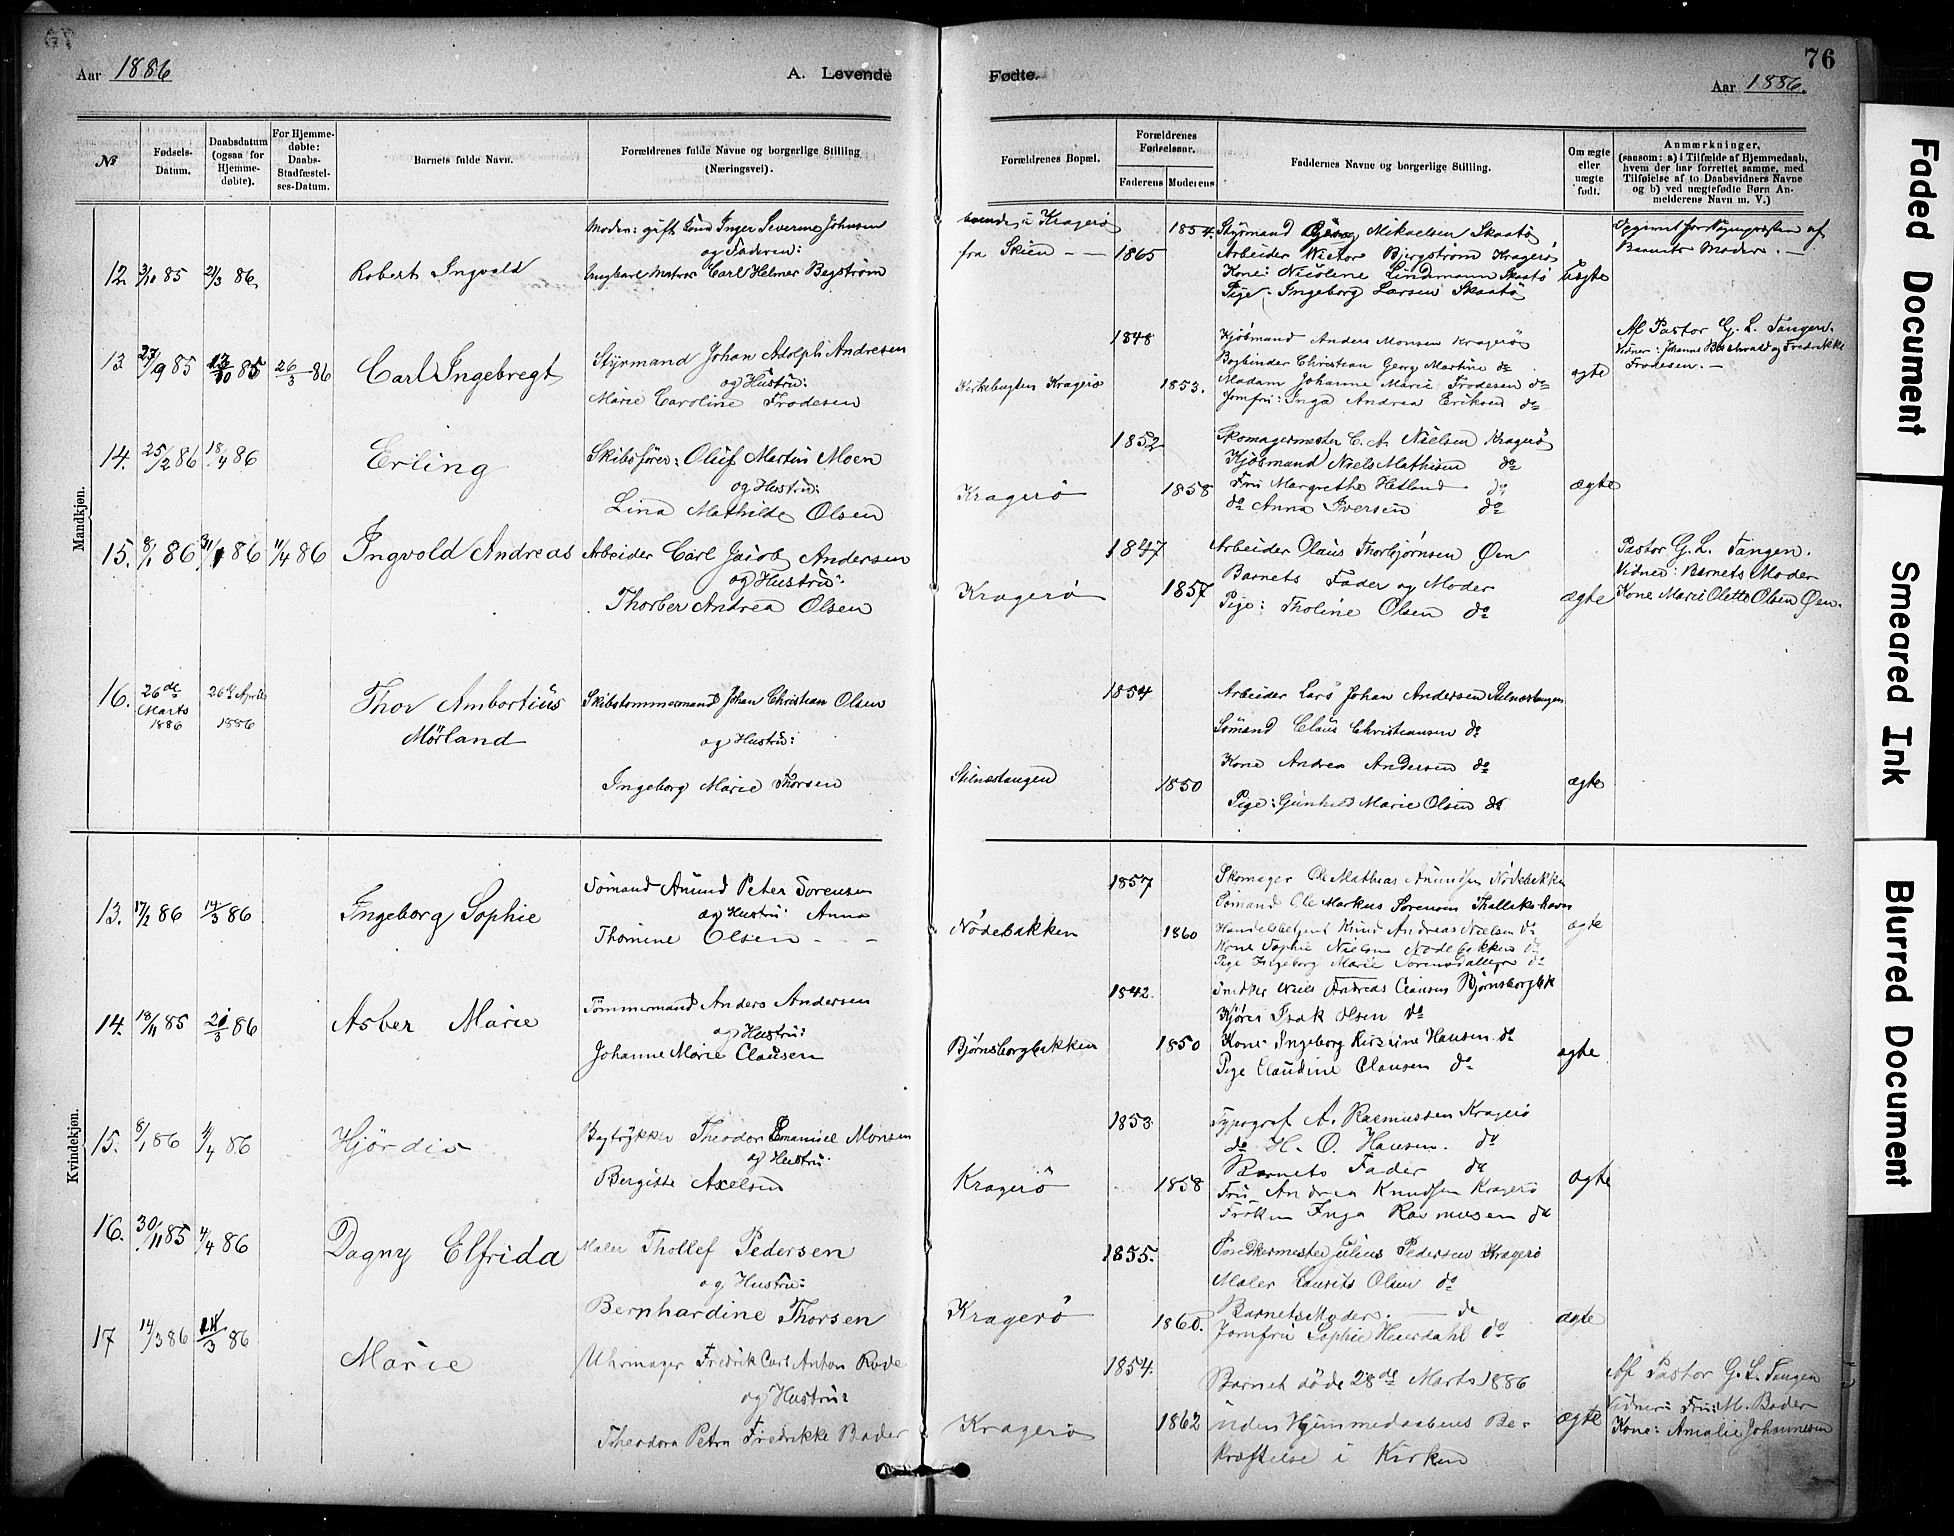 76
Aar 1886
A. Levende
Fødte.
Aar 1886.
№
Fødsels-Datum.
Daabsdatum (ogsaa for Hjemmedøbte).
For Hjemmedøbte: Daabs-Stadfæstelses-Datum.
Barnets fulde Navn.
Forældrenes fulde Navne og borgerlige Stilling (Næringsvei).
Forældrenes Bopæl.
Forældrenes Fødselsaar.
Faderens
Moderens
Faddernes Navne og borgerlige Stilling.
Om ægte eller uægte født.
Anmærkninger,
(saasom: a) i Tilfælde af Hjemmedaab, hvem der har forrettet samme, med Tilføielse af to Daabsvidners Navne og b) ved uægtefødte Børn Anmelderens Navn m. V.)
Mandkjøn.
12 3/10 85 21/3 86. Robert Ingvald
Moder: gift Inger Severine Johnsen
og Faderen:
Ungkarl Matros Carl Helmer Bergstrøm
boende i Kragerø
fra Skien - - 1865
1854. Styrmand Georg Mikaelsen Skaatø
Arbeider Victor Bjergstrøm Kragerø
Kone: Nicoline Lindemann Skaatø
Pige: Ingeborg Larsen Skaatø
Uægte
af
Barnets Moder. —
13 27/9 85 12/10 85 26/3 86 Carl Ingebregt
Styrmand Johan Adolph Andresen
og Hustru:
Marie Caroline Frodesen
Kirkebugten Kragerø
1848
1853.
Kjøbmand Anders Monsen Kragerø
Bogbinder Christian Georg Martini do
Madam Johanne Marie Frodesen do
Jomfru: Inga Andrea Eriksen do
ægte
Af Pastor G. L. Tangen.
Vidner: Johanne og Fredrikke
Frodesen. —
14. 25/2 86 18/4 86 Erling
Skibsfører: Oluf Martin Moen
og Hustru:
Lina Mathilde Olsen
Kragerø
1852
1858
Skomagermester C. A. Nielsen Kragerø
Kjøbmand Niels Mathisen do
Fru Margrethe Hetland do
do Anna Iversen do
ægte
15. 8/1 86 31/1 86 11/4 86 Ingvold Andreas
Arbeider Carl Jacob Andersen
og Hustru:
Thorber Andrea Olsen
Kragerø
1847
1857
Arbeider Olaus Thorbjørnsen Øen
Barnets Fader og Moder
Pige: Tholine Olsen do
ægte
Pastor G. L. Tangen.
Vidner: Barnets Moder
Kone Marie Olette Olsen Øen.
16. 26de Marts 1886
26de April 1886
Thor Ambortius
Mørland
Skibstømmermand Johan Christian Olsen
og Hustru:
Ingeborg Marie Thorsen
Stilnæstangen
1854
1850
Arbeider Lars Johan Andersen Stilnæstangen
Sømand Claus Christiansen do
Kone Andrea Andersen do
Pige: Gunhild Marie Olsen do
ægte
Kvindekjøn.
13. 17/2 86 14/3 86 Ingeborg Sophie
Sømand Anund Peter Sorensen
og Hustru: Anna
Thomine Olsen - -
Nødebakken
1857
1860
Skomager Ole Mathias Anundsen Nødebakken
Sømand Ole Markus Sørensen
Knud Andreas Nielsen do
Kone Sophie Nielsen Nødebakken
Pige Ingeborg Marie do
ægte
14. 18/11 85 21/3 86 Asber Marie
Tømmermand Anders Andersen
og Hustru:
Johanne Marie Clausen
Bjørnsborgbakken
1842.
1850
Snedker Niels Andreas Clausen Bjørnsborgbk
Isak Olsen do
Kone Ingeborg Kirstine Hansen do
Pige Claudine Clausen do
ægte
15. 8/1 86 4/4 86 Hjördis
Bogtrykker Theodor Emanuel Monsen
og Hustru
Bergitte Axelsen
Kragerö
1853
1858
Typograf A. Rasmussen Kragerø
do H. O. Hansen. do
Barnets Fader do
Fru Andrea Knudsen Kragerø
Frøken Inga Rasmusen do
ægte
16. 30/11 85 4/4 86 Dagny Elfrida
Maler Thollef Pedersen
og Hustru:
Bernhardine Thorsen
Kragerø
1855.
1860.
Snedkermester Julius Pedersen Kragerø
Maler Laurits Olsen do
Barnets Moder. — do
Jomfru Sophie Heierdahl do
ægte
17 14/3 86 /3 86 Marie
Uhrmager Fredrik Carl Anton Rode
og Hustru:
Theodora Petra Fredrikke Bader
Kragerø
1854.
1862
Barnet døde 28de Marts 1886
uden Hjemmedaabens Be-
kræftelse i Kirken
ægte
Af Pastor G. L. Tangen
Vidner: Fru: M. Bader
Kone: Amalie Johannesen
Faded Document
Smeared Ink
Blurred Document